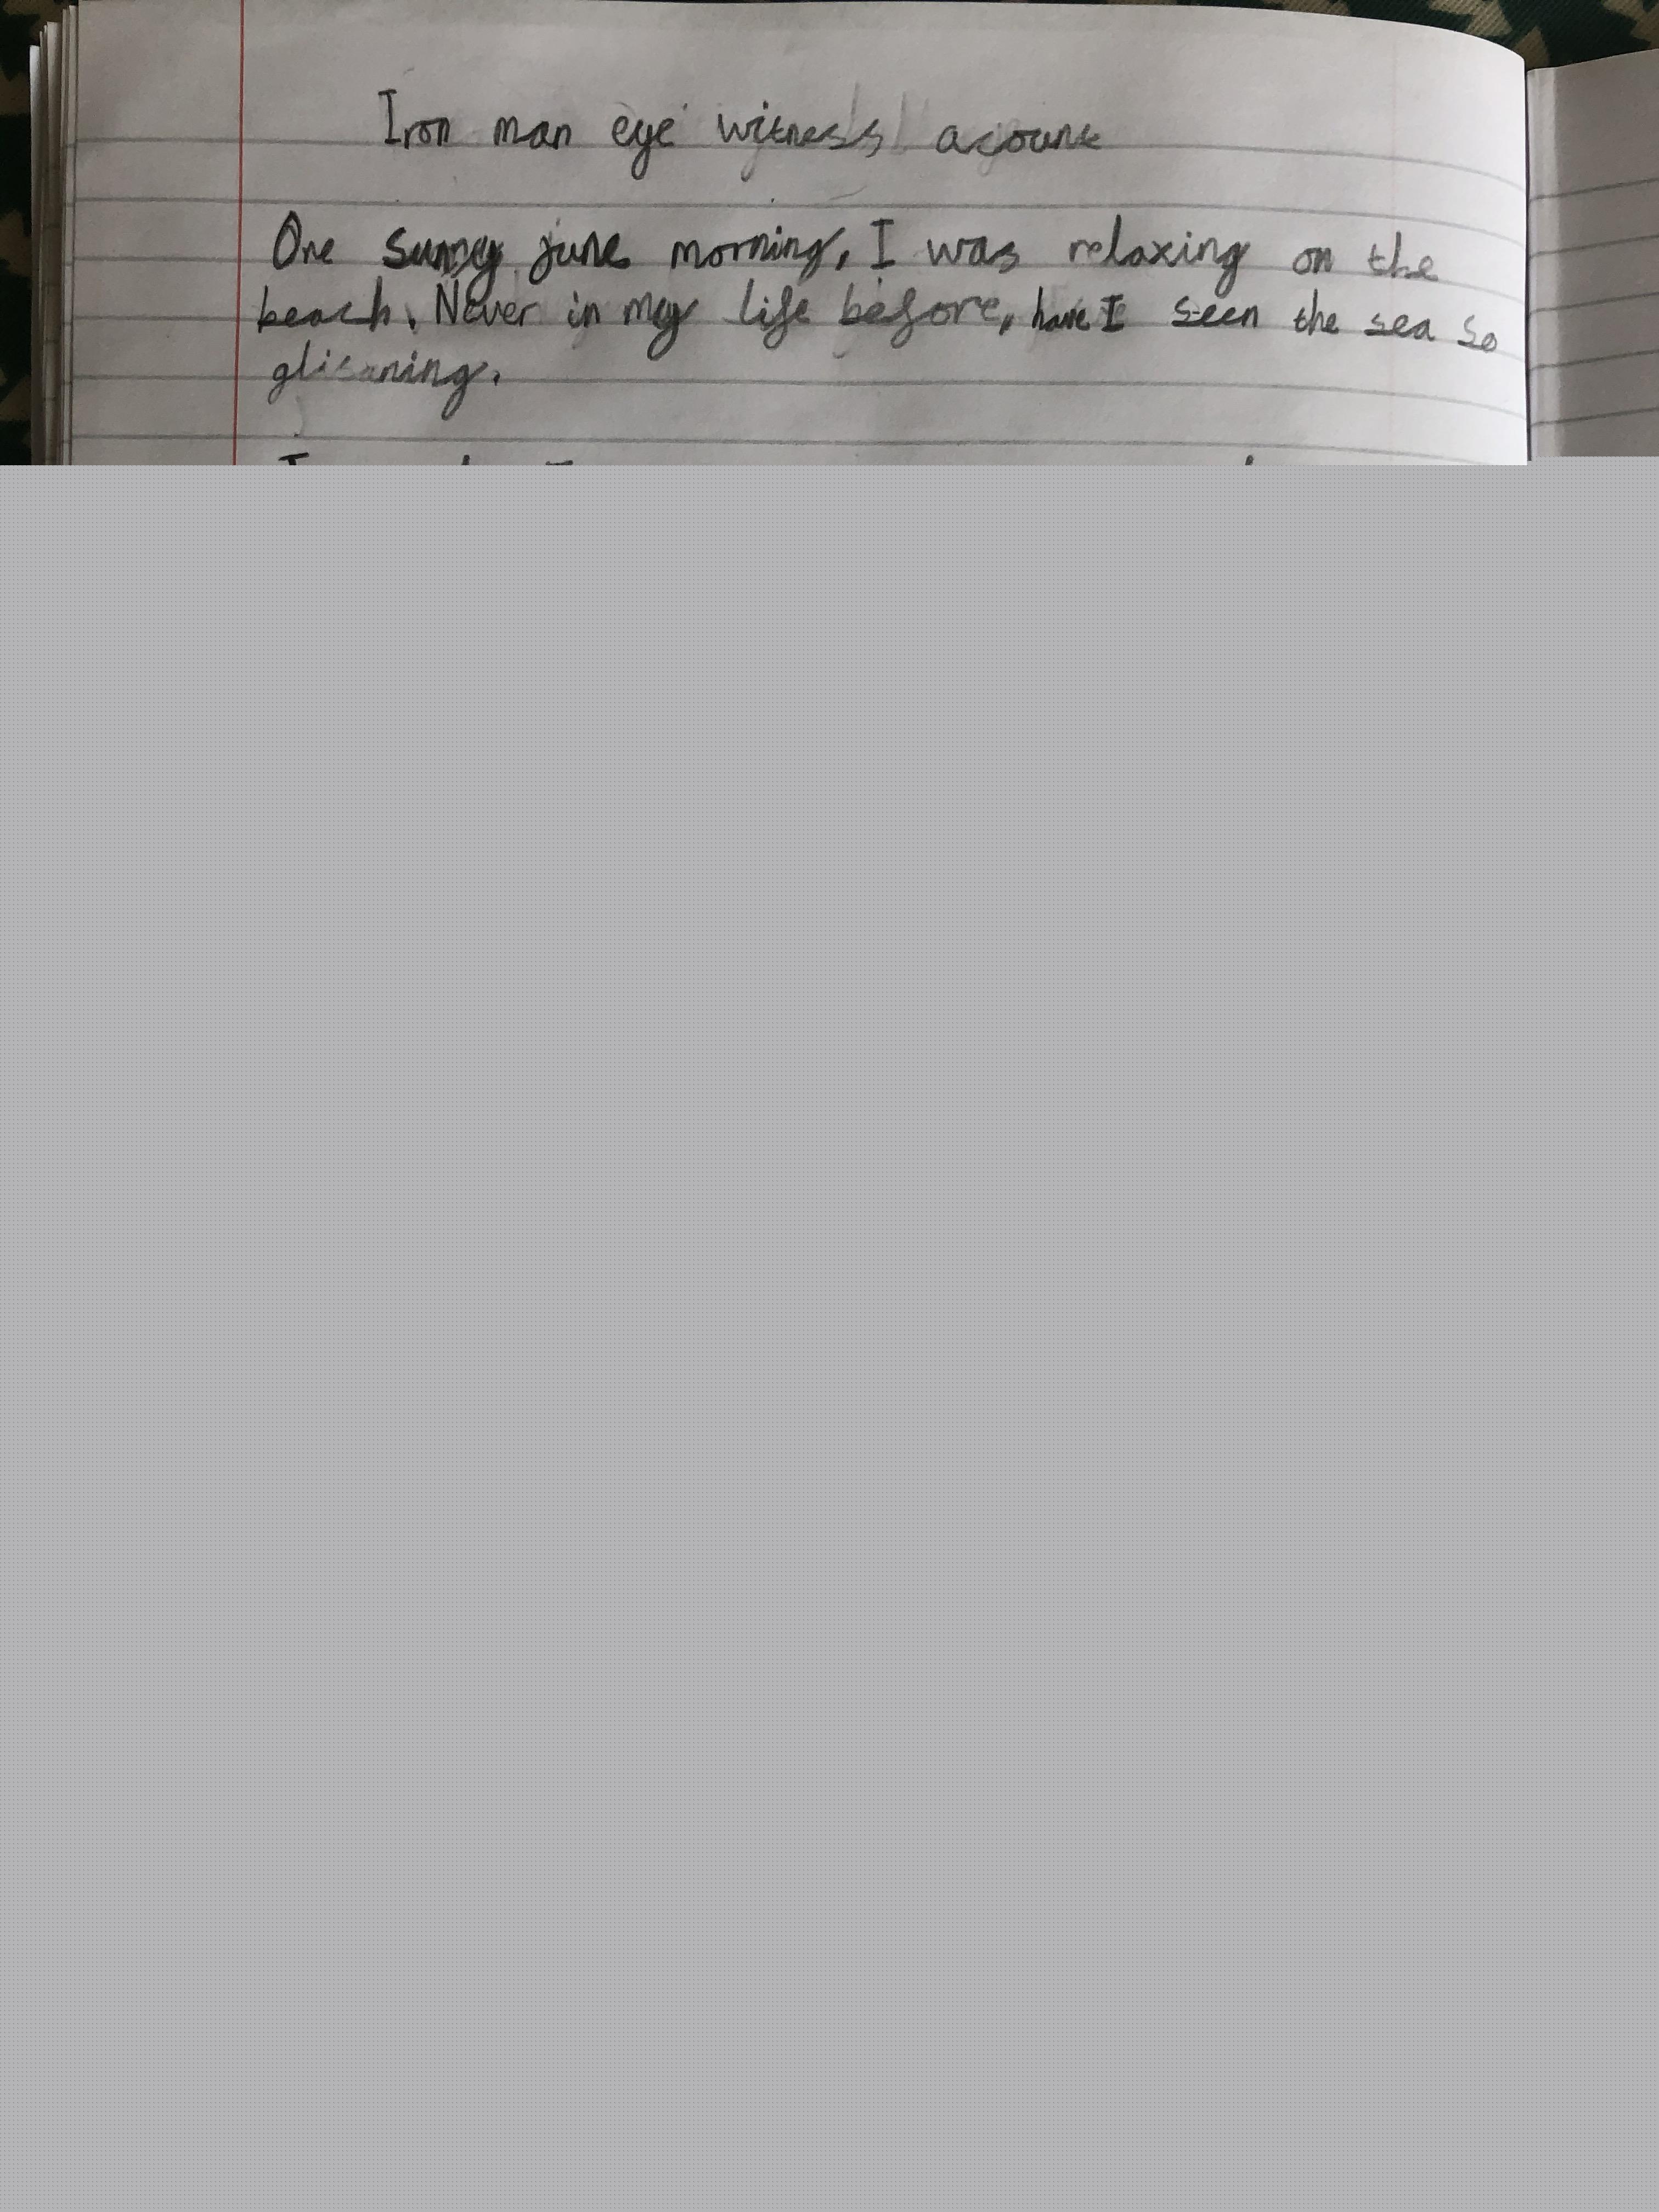 Iron man eye witness acount
One sunny june morning, I was relaxing on the
beach. Never in my life before, have I seen the sea so
glisaning.